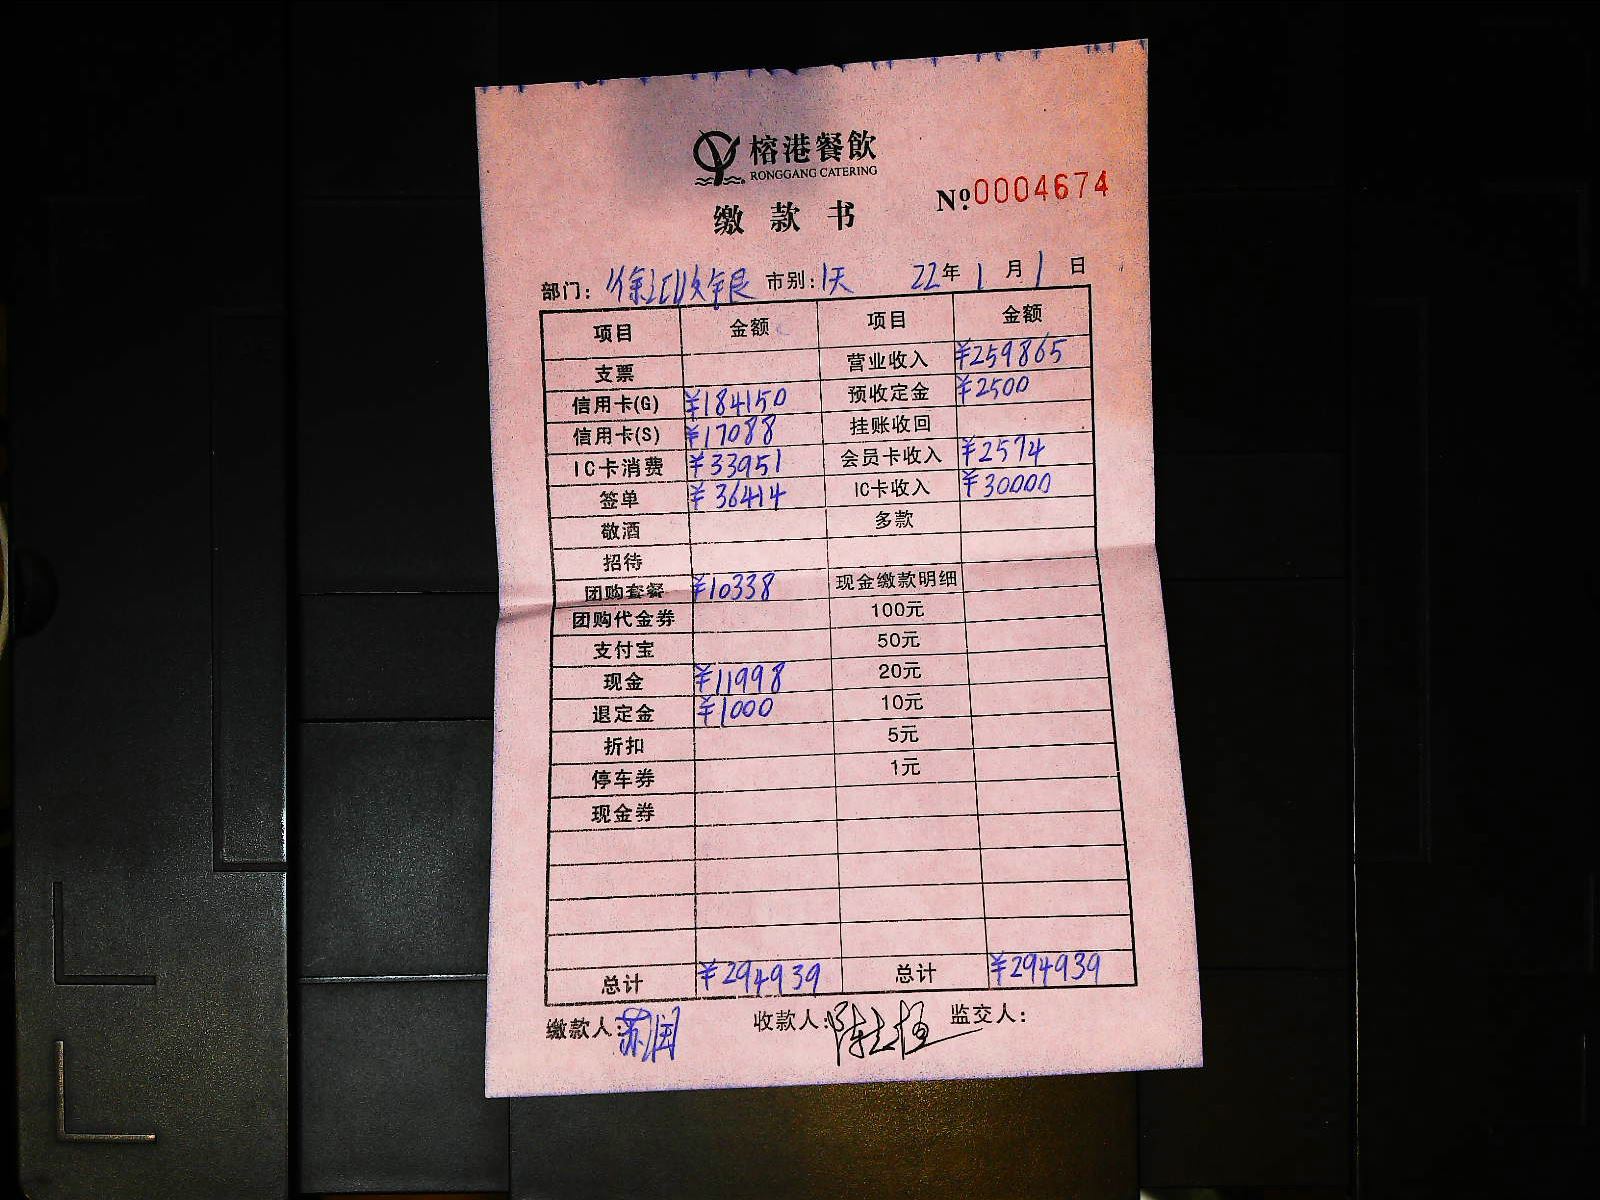 榕港餐飲
RONGGANG CATERING
№0004674
缴款书
部门：徐汇收银 市别：1天 22年1月1日
项目 金额 项目 金额
支票 营业收入 ¥259865
信用卡(G) ¥184150 预收定金 ¥2500
信用卡(S) ¥17088 挂账收回
IC卡消费 ¥33951 会员卡收入 ¥2574
签单 ¥36414 IC卡收入 ¥30000
敬酒 多款
招待
团购套餐 ¥10338 现金缴款明细
团购代金券 100元
支付宝 50元
现金 ¥11998 20元
退定金 ¥1000 10元
折扣 5元
停车券 1元
现金券
总计 ¥294939 总计 ¥294939
缴款人：苏国 收款人：陈 监交人：